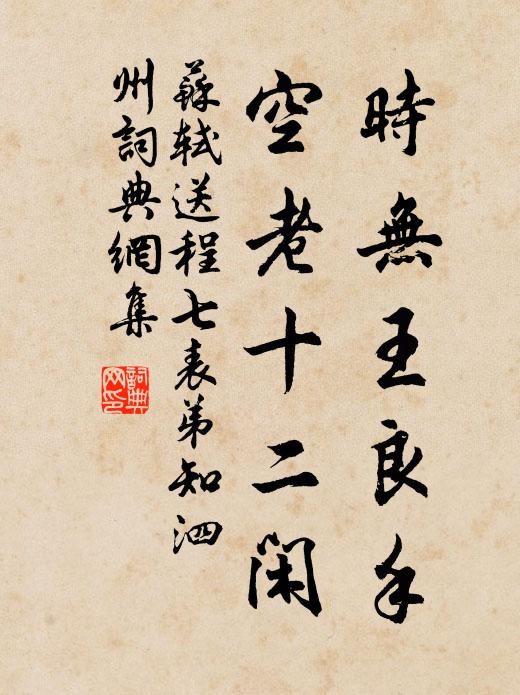 時無王良手
空老十二閑
蘇軾送程七表弟知泗
州詞典網集
詞典
网印